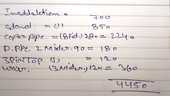 Installation = 700
Stand = 11 850
Coper Pipe = (8ft) 280 = 2240
D. Pipe 2 Meter. 90 = 180
3 Pin Top 11 = 120
wear. (3 Meter) 120 = 360
4450